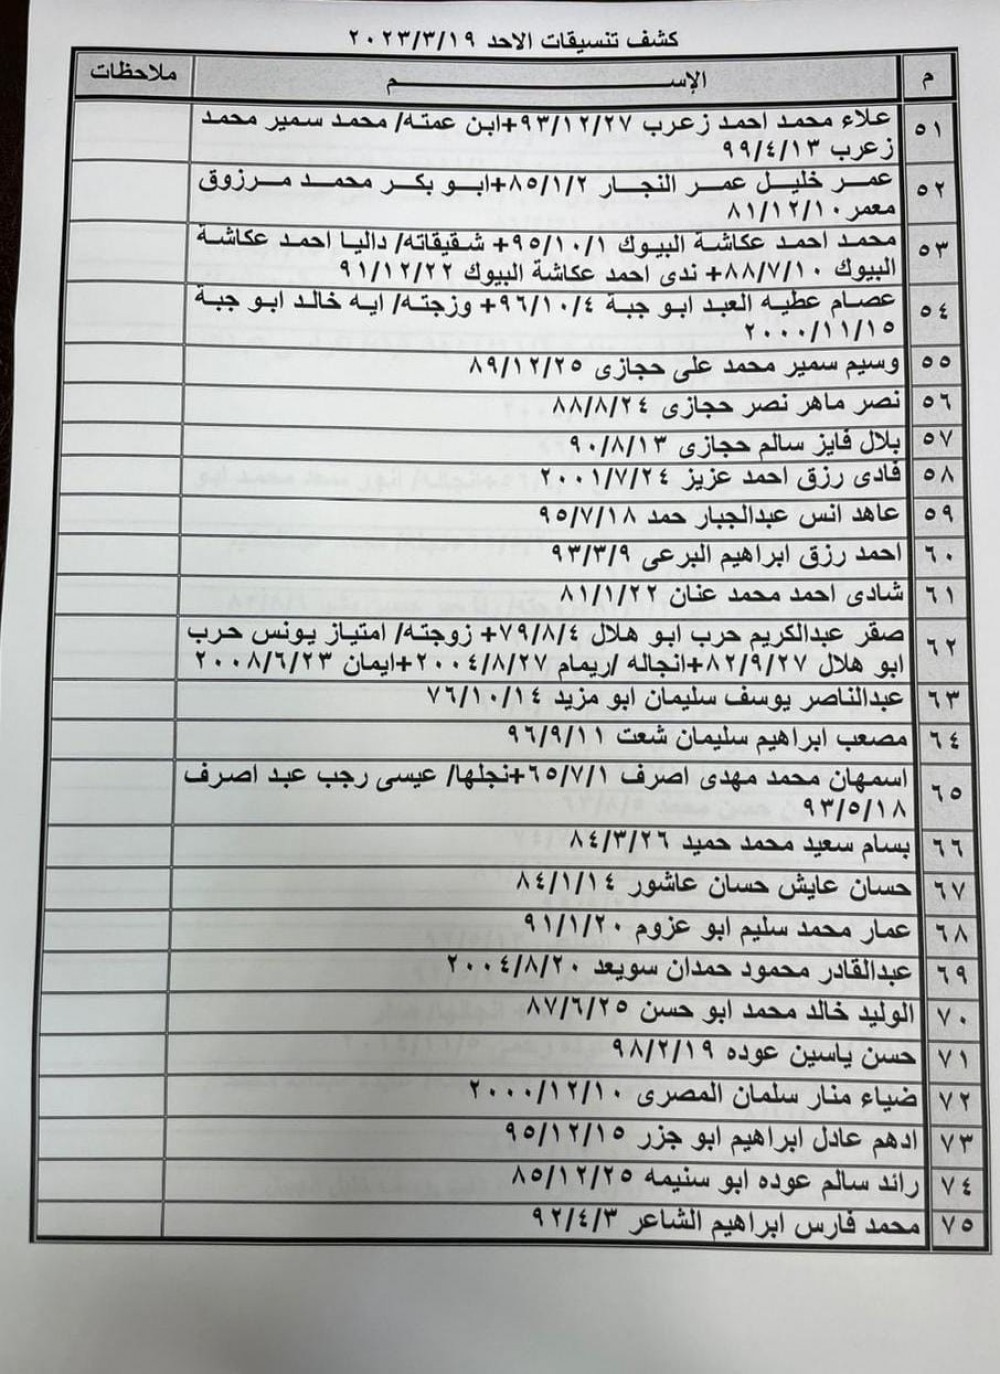 كشف تنسيقات الاحد ٢٠٢٣/٣/١٩
م الإســـــــــم ملاحظات
٥١ علاء محمد احمد زعرب ٩٣/١٢/٢٧+ابن عمته/ محمد سمير محمد
زعرب ٩٩/٤/١٣
٥٢ عمر خليل عمر النجار ٨٥/١/٢+ابو بكر محمد مرزوق
معمر ٨١/١٢/١٠
٥٣ محمد احمد عكاشة البيوك ٩٥/١٠/١+ شقيقاته/ داليا احمد عكاشة
البيوك ٨٨/٧/١٠+ ندى احمد عكاشة البيوك ٩١/١٢/٢٢
٥٤ عصام عطيه العبد ابو جبة ٩٦/١٠/٤+ وزجته/ ايه خالد ابو جبة
٢٠٠٠/١١/١٥
٥٥ وسيم سمير محمد على حجازى ٨٩/١٢/٢٥
٥٦ نصر ماهر نصر حجازى ٨٨/٨/٢٤
٥٧ بلال فايز سالم حجازى ٩٠/٨/١٣
٥٨ فادى رزق احمد عزيز ٢٠٠١/٧/٢٤
٥٩ عاهد انس عبدالجبار حمد ٩٥/٧/١٨
٦٠ احمد رزق ابراهيم البرعى ٩٣/٣/٩
٦١ شادى احمد محمد عنان ٨١/١/٢٢
٦٢ صقر عبدالكريم حرب ابو هلال ٧٩/٨/٤+ زوجته/ امتياز يونس حرب
ابو هلال ٨٢/٩/٢٧+انجاله /ريمام ٢٠٠٤/٨/٢٧+ايمان ٢٠٠٨/٦/٢٣
٦٣ عبدالناصر يوسف سليمان ابو مزيد ٧٦/١٠/١٤
٦٤ مصعب ابراهيم سليمان شعت ٩٦/٩/١١
٦٥ اسمهان محمد مهدى اصرف ٦٥/٧/١+نجلها/ عيسى رجب عبد اصرف
٩٣/٥/١٨
٦٦ بسام سعيد محمد حميد ٨٤/٣/٢٦
٦٧ حسان عايش حسان عاشور ٨٤/١/١٤
٦٨ عمار محمد سليم ابو عزوم ٩١/١/٢٠
٦٩ عبدالقادر محمود حمدان سويعد ٢٠٠٤/٨/٢٠
٧٠ الوليد خالد محمد ابو حسن ٨٧/٦/٢٥
٧١ حسن ياسين عوده ٩٨/٢/١٩
٧٢ ضياء منار سلمان المصرى ٢٠٠٠/١٢/١٠
٧٣ ادهم عادل ابراهيم ابو جزر ٩٥/١٢/١٥
٧٤ رائد سالم عوده ابو سنيمه ٨٥/١٢/٢٥
٧٥ محمد فارس ابراهيم الشاعر ٩٢/٤/٣